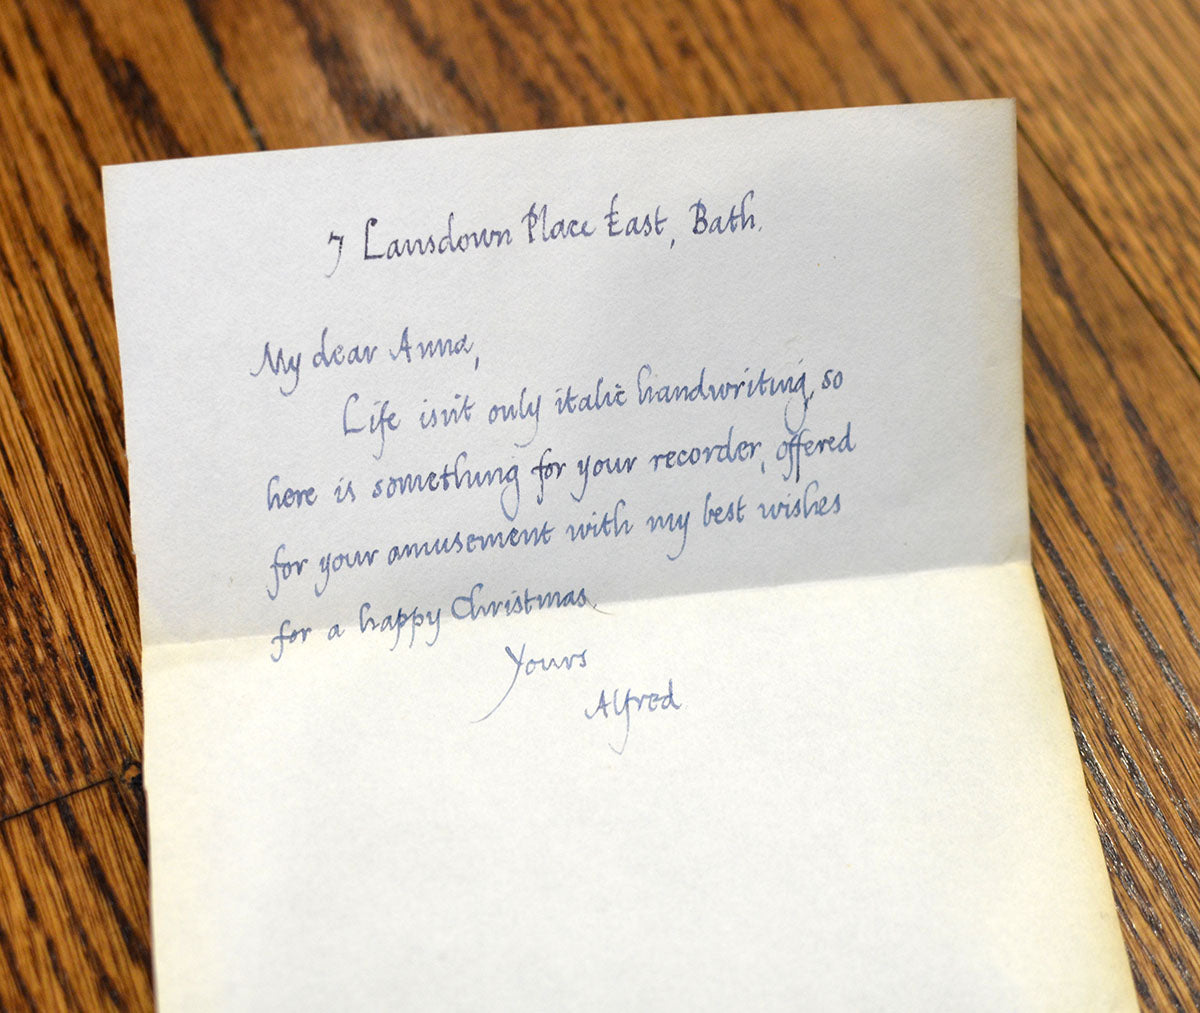 7 Lansdown Place East, Bath.
My dear Anna,
Life isn't only italic handwriting, so
here is something for your recorder, offered
for your amusement with my best wishes
for a happy Christmas.
Yours
Alfred